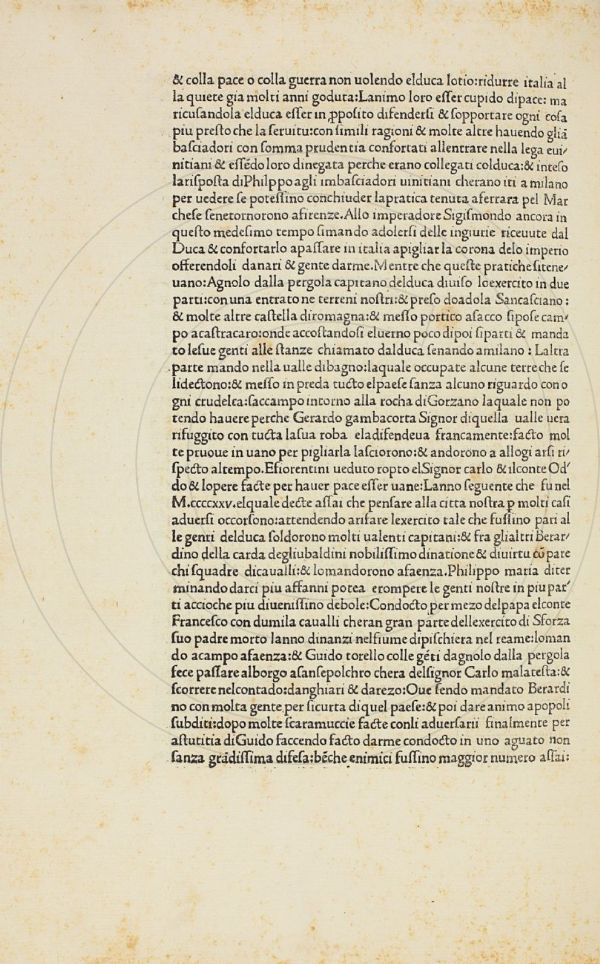 & colla pace o colla guerra non uolendo elduca lotio:ridurre italia al
la quiete gia molti anni goduta:Lanimo loro eſſer cupido dipace: ma
ricuſandola elduca eſſer in ꝓpoſito difenderſi & ſopportare ogni coſa
piu preſto che la ſeruitu:con ſimili ragioni & molte altre hauendo gliā
baſciadori con ſomma prudentia confortati allentrare nella lega eui⸗
nitiani & eſſēdo loro dinegata perche erano collegati colduca:& inteſo
lariſpoſta diPhilppo agli imbaſciadori uinitiani cherano iti a milano
per uedere ſe poteſſino conchiuder lapratica tenuta aferrara pel Mar
cheſe ſenetornorono afirenze.Allo imperadore Sigiſmondo ancora in
queſto medeſimo tempo ſimando adolerſi delle ingiurie riceuute dal
Duca & confortarlo apaſſare in italia apigliar la corona delo imperio
offerendoli danari & gente darme.Mentre che queſte pratiche ſitene⸗
uano:Agnolo dalla pergola capitano delduca diuiſo loexercito in due
parti:con una entrato ne terreni noſtri:& preſo doadola Sancaſciano :
& molte altre caſtella diromagna:& meſſo portico aſacco ſipoſe cam⸗
po acaſtracaro:onde accoſtandoſi eluerno poco dipoi ſiparti & manda
to leſue genti alle ſtanze chiamato dalduca ſenando amilano : Laltra
parte mando nella ualle dibagno:laquale occupate alcune terre che ſe
lidectono:& meſſo in preda tucto elpaeſe ſanza alcuno riguardo con o
gni crudelta:ſaccampo intorno alla rocha diGorzano laquale non po
tendo hauere perche Gerardo gambacorta Signor diquella ualle uera
rifuggito con tucta laſua roba eladifendeua francamente:facto mol
te pruoue in uano per pigliarla laſciorono:& andorono a allogi arſi ri
ſpecto altempo.Efiorentini ueduto ropto elSignor carlo & ilconte Od⸗
do & lopere facte per hauer pace eſſer uane:Lanno ſeguente che fu nel
M.ccccxxv.elquale decte aſſai che penſare alla citta noſtra ꝑ molti caſi
aduerſi occorſono:attendendo arifare lexercito tale che fuſſino pari al
le genti delduca ſoldorono molti ualenti capitani:& fra glialtri Berar⸗
dino della carda degliubaldini nobiliſſimo dinatione & diuirtu cō pare
chi ſquadre dicaualli:& lomandorono afaenza.Philippo maria diter
minando darci piu affanni potea erompere le genti noſtre in piu par⸗
ti accioche piu diueniſſino debole:Condocto per mezo delpapa elconte
Franceſco con dumila caualli cheran gran parte dellexercito di Sforza
ſuo padre morto lanno dinanzi nelfiume dipiſchiera nel reame:loman
do acampo afaenza:& Guido torello colle gēti dagnolo dalla pergola
fece paſſare alborgo aſanſepolchro chera delſignor Carlo malateſta:&
ſcorrere nelcontado:danghiari & darezo:Oue ſendo mandato Berardi
no con molta gente per ſicurta diquel paeſe:& poi dare animo apopoli
ſubditi:dopo molte ſcaramuccie facte conli aduerſarii finalmente per
aſtutitia diGuido faccendo facto darme condocto in uno aguato non
ſanza grādiſſima difeſa:bēche enimici fuſſino maggior numero aſſai: